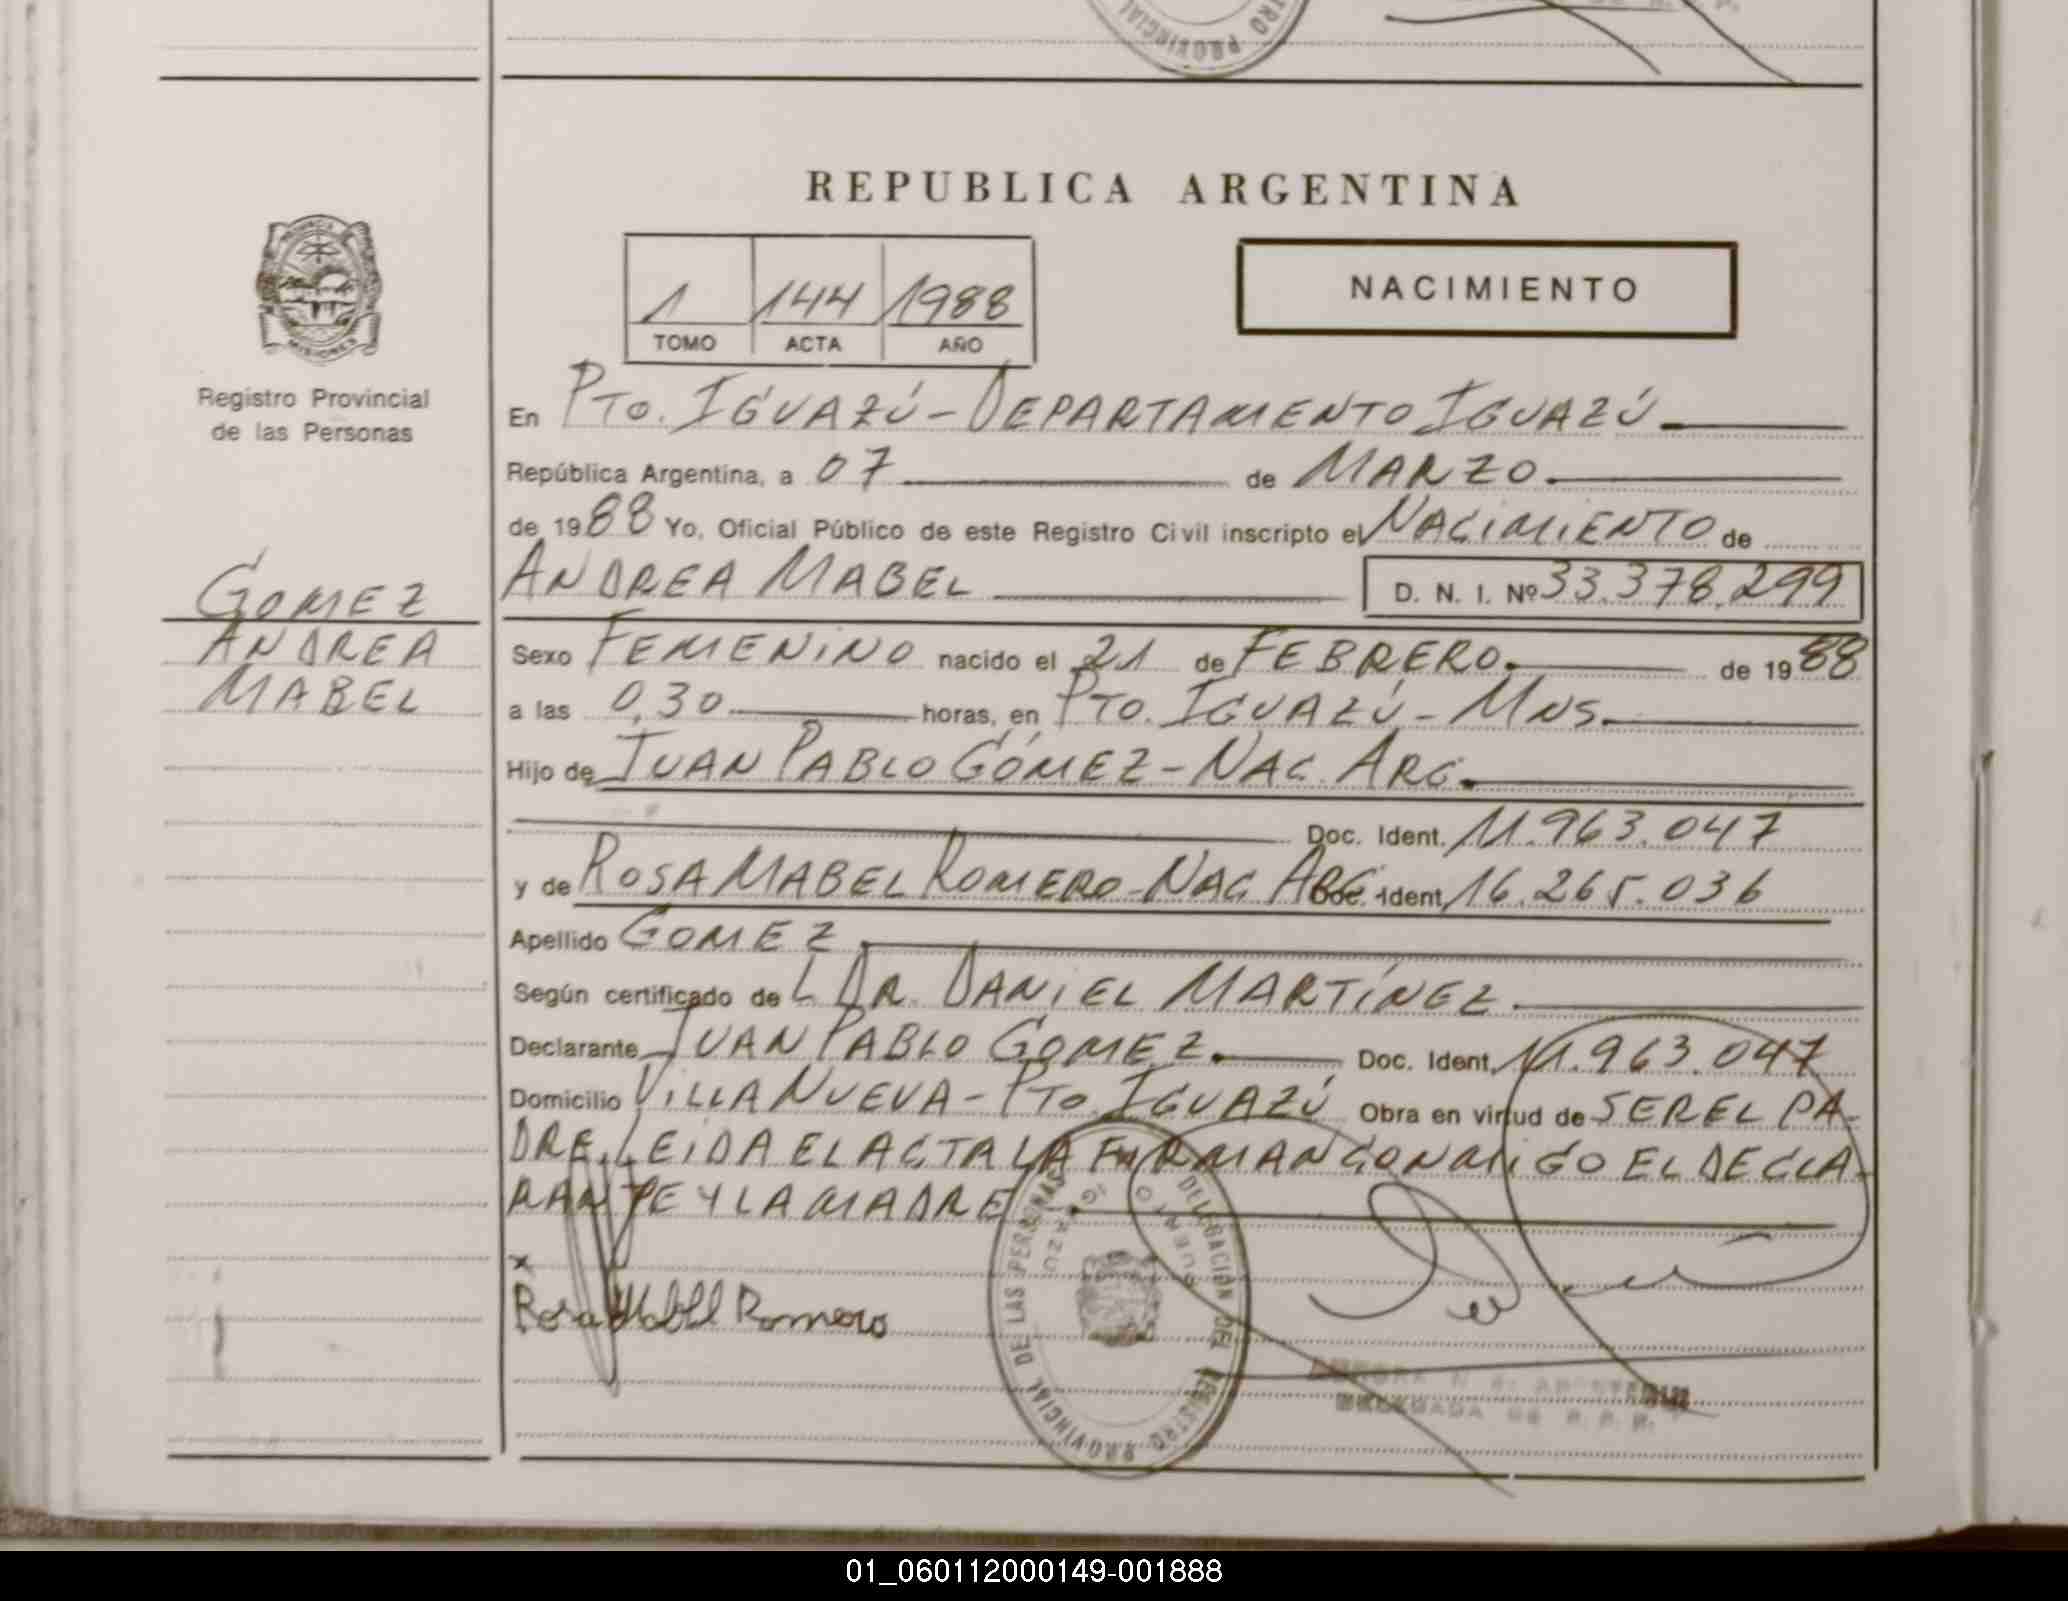 REPUBLICA ARGENTINA
PROVINCIA
MISIONES
Registro Provincial
de las Personas
1 144 1988
TOMO ACTA AÑO
NACIMIENTO
En PTO. IGUAZÚ - DEPARTAMENTO IGUAZÚ
República Argentina, a 07 de MARZO
de 1988 Yo, Oficial Público de este Registro Civil inscripto el NACIMIENTO de
ANDREA MABEL D. N. I. Nº 33.378.299
GOMEZ
ANDREA
MABEL
Sexo FEMENINO nacido el 21 de FEBRERO. de 1988
a las 0,30 horas, en PTO. IGUAZÚ - MNS.
Hijo de JUAN PABLO GÓMEZ - NAC. ARG.
Doc. Ident. 11.963.047
y de ROSA MABEL ROMERO - NAC ARG. Doc. Ident. 16.265.036
Apellido GOMEZ
Según certificado de L DR. DANIEL MARTÍNEZ
Declarante JUAN PABLO GOMEZ. Doc. Ident. 11.963.047
Domicilio VILLA NUEVA - PTO IGUAZÚ Obra en virtud de SER EL PA-
DRE. LEIDA EL ACTA LA FIRMAN CONMIGO EL DECLA-
RANTE Y LA MADRE
x
Rosa Mabel Romero
DELEGACIÓN DEL REGISTRO PROVINCIAL DE LAS PERSONAS
DELEGADA
01_060112000149-001888